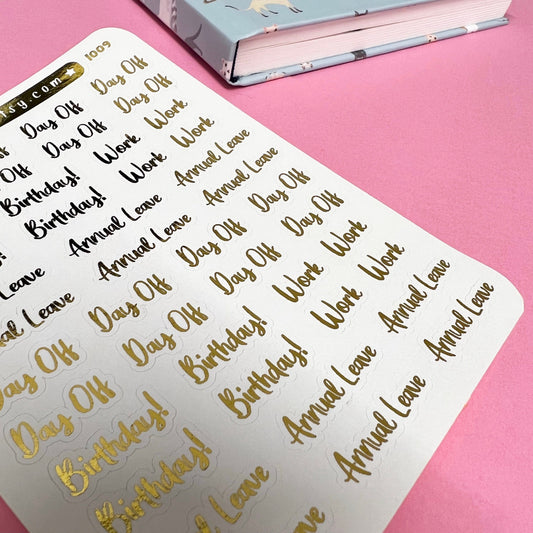 sy.com 1009
Off Day Off Day Off
Off Day Off Day Off
Birthday! Work Work
Birthday! Work Work
Annual Leave Annual Leave
Leave Annual Leave Annual Leave
Annual Leave Day Off Day Off Day Off
Day Off Day Off Day Off Day Off
Day Off Birthday! Work Work
Birthday! Birthday! Work Work
Birthday! Annual Leave Annual Leave
Leave Annual Leave Annual Leave